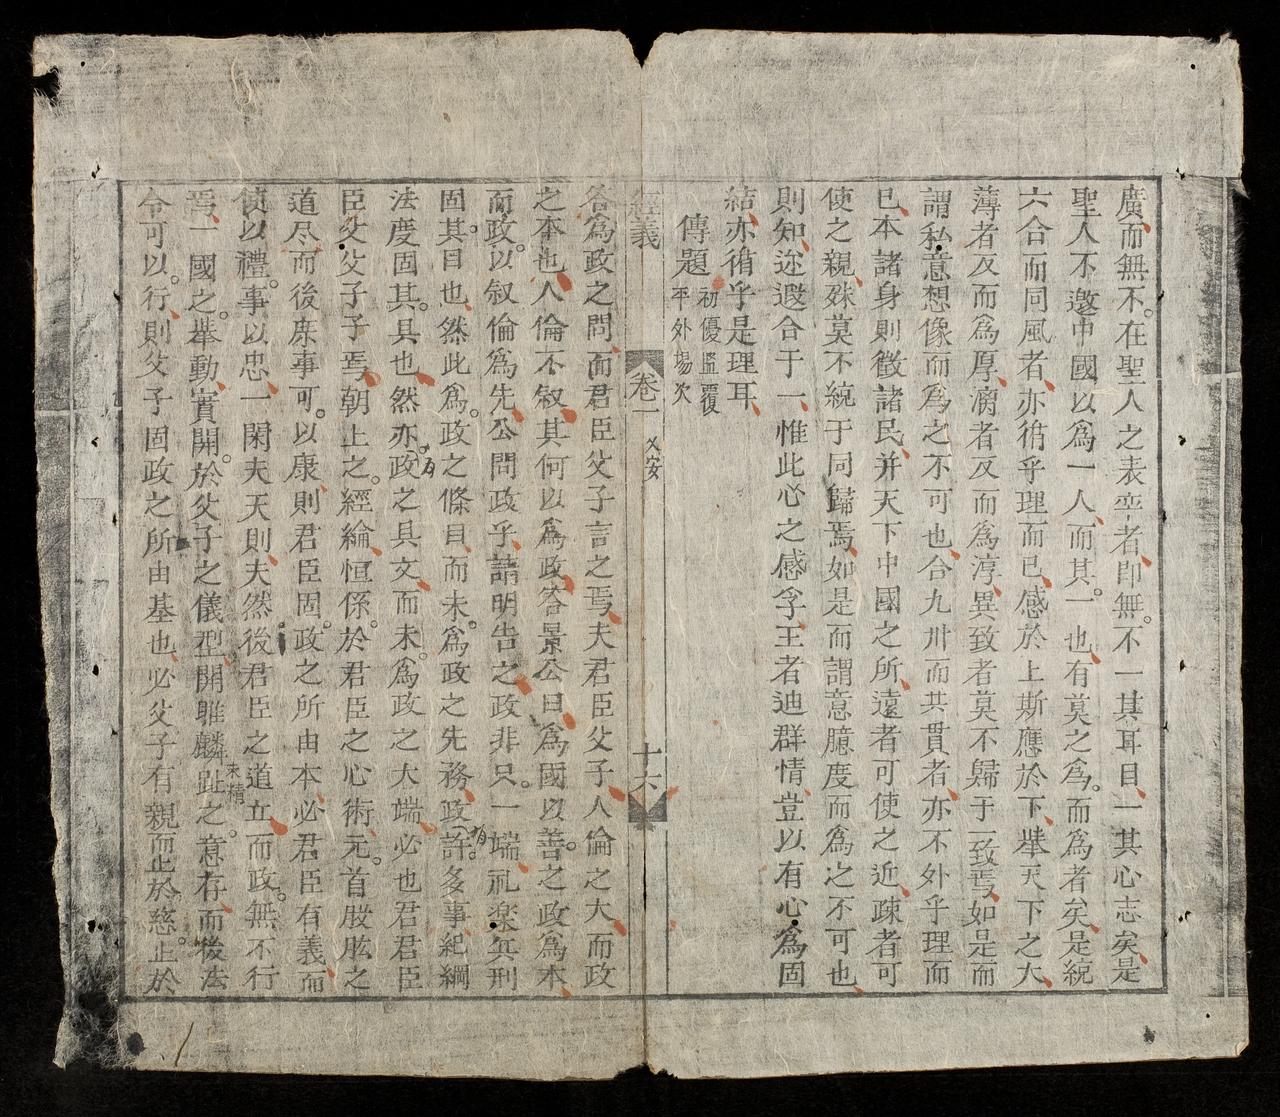 廣而無不在聖人之表率者即無不一其耳目一其心志矣是
聖人不邀中國以為一人而其一也有莫之為而為者矣是統
六合而同風者亦循乎理而已感於上斯應於下举天下之大
薄者反而為厚漓者反而為淳異致者莫不歸于一致焉如是而
謂私意想像而為之不可也合九州而共貫者亦不外乎理而
已本諸身則徵諸民并天下中國之所遠者可使之近疎者可
使之親殊莫不統于同歸焉如是而謂意臆度而為之不可也
則知迩遐合于一惟此心之感孚王者迪群情豈以有心為固
結亦循乎是理耳
傳題
初優監覆
平外場次
經義
卷一
乂安
十六
答為政之問而君臣父子言之焉夫君臣父子人倫之大而政
之本也人倫不叙其何以為政答景公曰為國以善之政為本
而政以叙倫為先公問政乎請明告之政非只一端礼楽兵刑
固其目也然此為政之條目而未為政之先務政許多事紀綱
有
法度固其具也然亦政之具文而未為政之大端必也君君臣
有
臣父父子子焉朝上之經綸恒係於君臣之心術元首股肱之
道尽而後庶事可以康則君臣固政之所由本必君臣有義而
使以禮事以忠一閑夫天則夫然後君臣之道立而政無不行
未精
焉一國之举動實開於父子之儀型開雎麟趾之意存而後法
令可以行則父子固政之所由基也必父子有親而止於慈止於